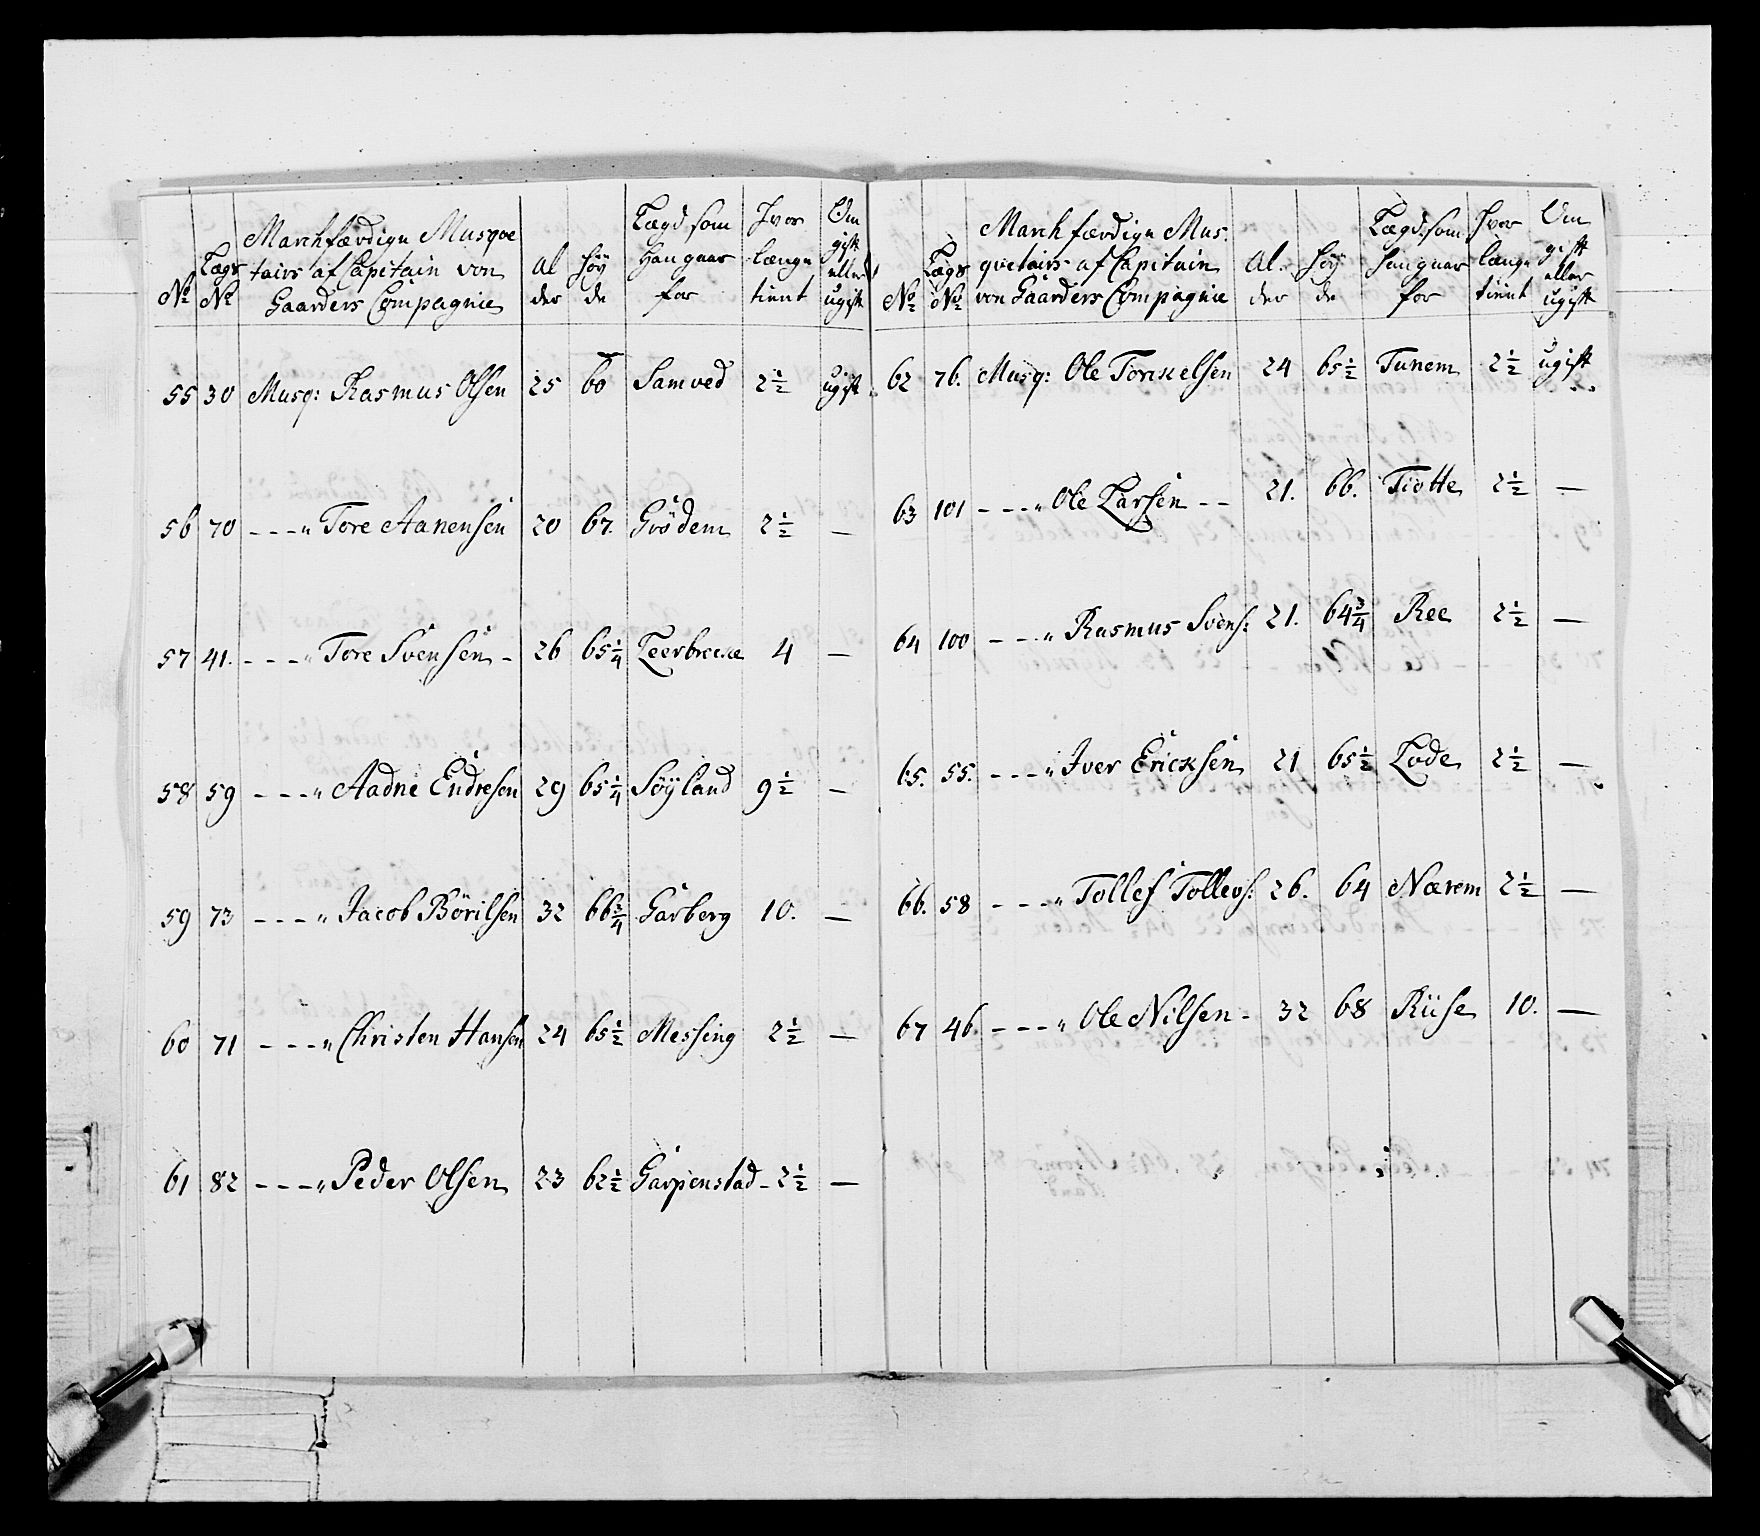 No
Lægs No
Marchfærdige Musqve
tairs af Capitain von
Gaarders Compagnie
Al
der
Höy
de
Lægd som
Han gaar
for
Hvor
længe
tient
Om
gift
eller
ugift
55 30 Musq: Rasmus Olsen 25 60 Samved 2½ ugift
56 70 - - - " Tore Aanensen 20 67. Grödem 2½ —
57 41. - - - " Tore Svensen - 26 65¼ Leerbrecke 4 —
58 59 - - - " Aadne Endresen 29 65¼ Söyland 9½ —
59 73 - - - " Jacob Börilsen 32 66¾ Garberg 10. —
60 71 - - - " Christen Hansen 24 65½ Messing 2½ —
61 82 - - - " Peder Olsen 23 62½ Garpenstad - 2½ —
No
Lægs
No
March færdige Mus.
qvetairs af Capitain
von Gaarders Compagnie
Al.
der
Höy
de
Lægd som
Han gaar
for
Hvor
længe
tient
Om
gift
eller
ugift
62 76. Musq: Ole Torckelsen 24 65½ Tunem 2½ ugift
63 101 - - - " Ole Larsen - - 21. 66. Tiötte 2½ —
64 100 - - - " Rasmus Svens: 21. 64¾ Ree 2½ —
65. 55. - - - " Iver Ericksen 21 65½ Lode 2½ —
66. 58 - - - " Tollef Tollevs: 26. 64 Nærem 2½ —
67 46. - - - " Ole Nilsen - 32 68 Riise 10. —